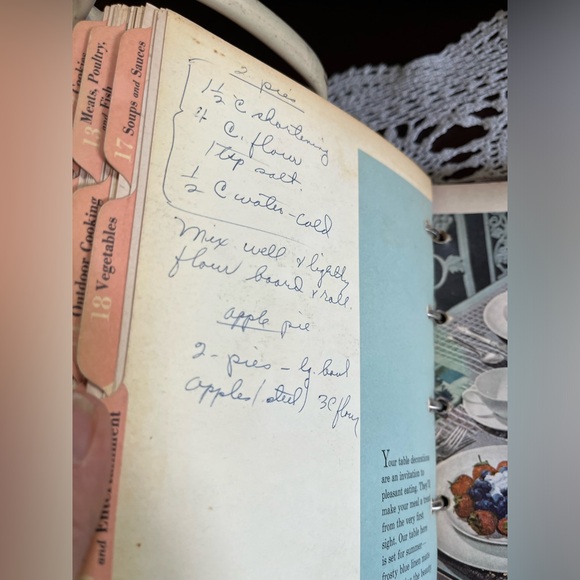 2 pies
1 1/2 C shortening
4 C. flour
1 tsp salt.
1/2 C water-cold
Mix well & lightly
flour board & roll.
apple pie
2 - pies - lg. bowl
apples/ (steel) 3C flour
Cooking
13 Meats, Poultry,
and Fish
17 Soups and Sauces
Outdoor Cooking
18 Vegetables
and Entertainment
Your table decorations
are an invitation to
pleasant eating. They'll
make your meal a treat
from the very first
sight. Our table here
is set for summer—
frosty blue linen mats
the beauty